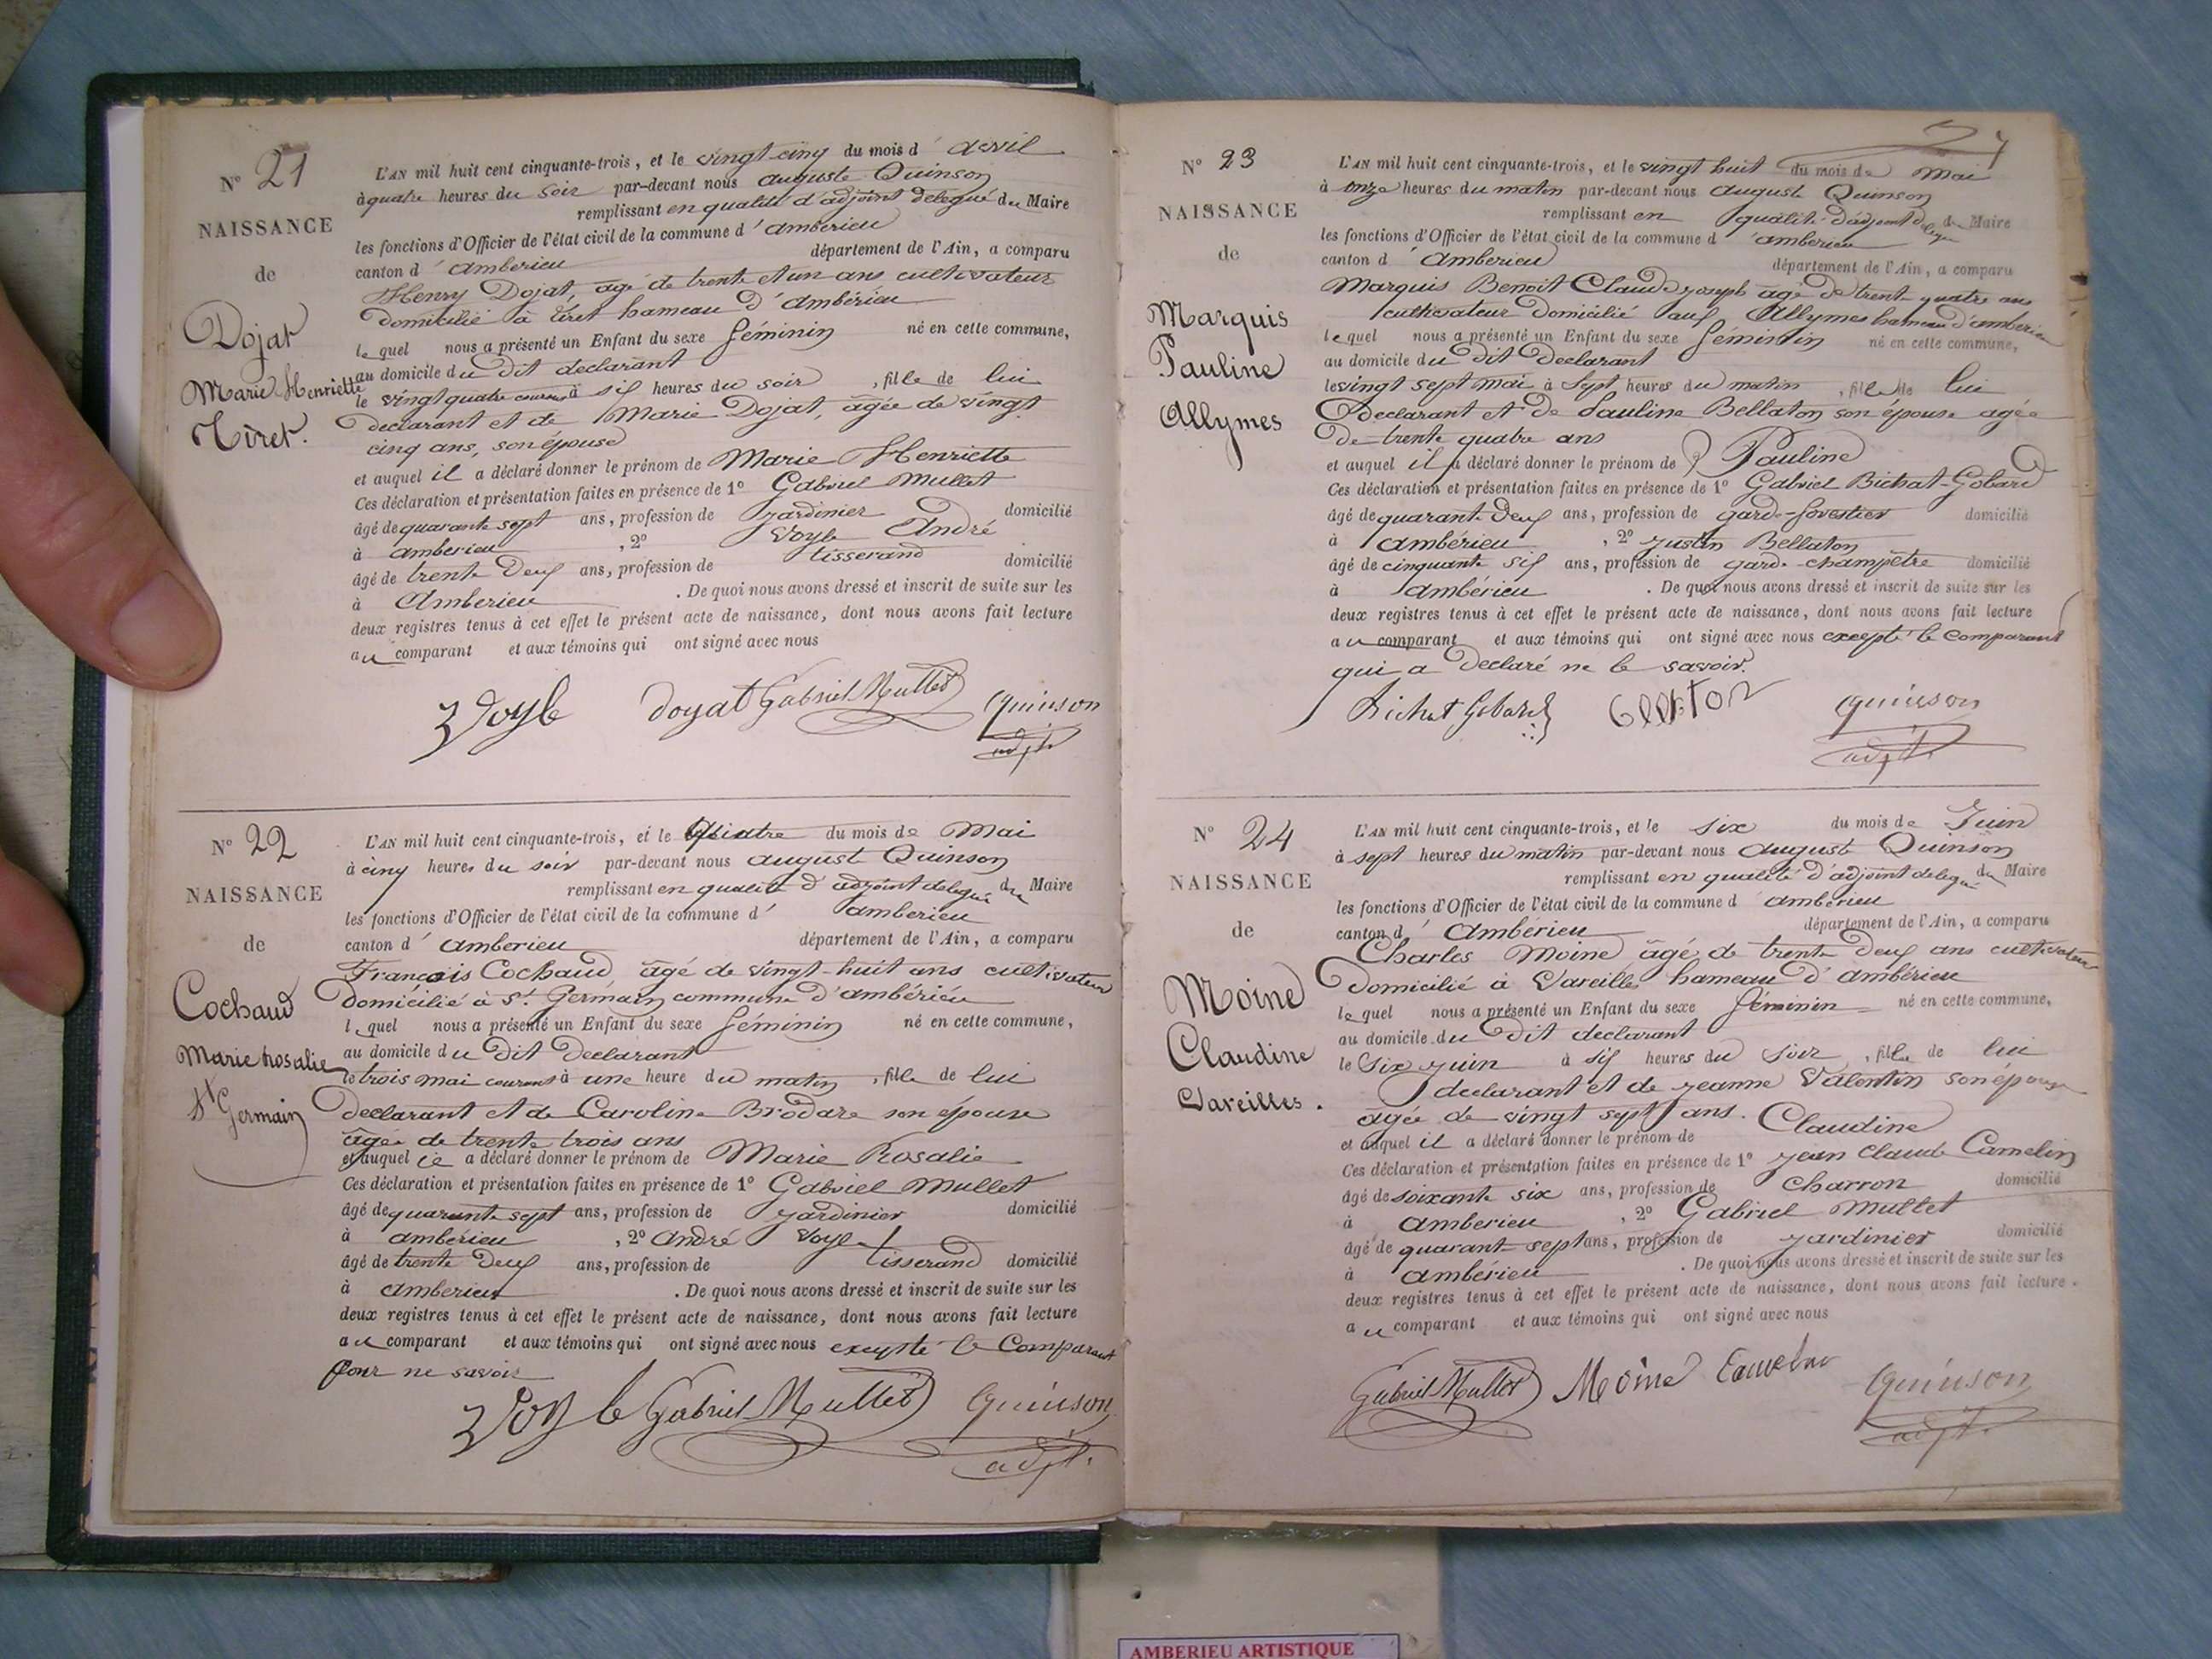 N° 21
NAISSANCE
de
Dojat
Marie Henriette
Tiret.
L'AN mil huit cent cinquante-trois, et le vingt-cinq du mois d' avril
à quatre heures du soir par-devant nous auguste Quinson
remplissant en qualité d'adjoint delegué du Maire
les fonctions d'Officier de l'état civil de la commune d' amberieu
canton d' amberieu département de l'Ain, a comparu
Henry Dojat, agé de trente et un ans cultivateur
domicilié à tiret hameau d'ambérieu
lequel nous a présenté un Enfant du sexe féminin né en cette commune,
au domicile du dit declarant
le vingt quatre courant à six heures du soir, fille de lui
declarant et de Marie Dojat, agée de vingt
cinq ans, son épouse
et auquel il a déclaré donner le prénom de Marie Henriette
Ces déclaration et présentation faites en présence de 1° Gabriel Mullet
âgé de quarante sept ans, profession de jardinier domicilié
à amberieu, 2° Voyle André
âgé de trente deux ans, profession de tisserand domicilié
à Amberieu. De quoi nous avons dressé et inscrit de suite sur les
deux registres tenus à cet effet le présent acte de naissance, dont nous avons fait lecture
au comparant et aux témoins qui ont signé avec nous
Voyle doyat Gabriel Mullet Quinson
adjt.
N° 22
NAISSANCE
de
Cochaud
Marie rosalie
St Germain
L'AN mil huit cent cinquante-trois, et le quatre du mois de Mai
à cinq heures du soir par-devant nous auguste Quinson
remplissant en qualité d'adjoint delegué du Maire
les fonctions d'Officier de l'état civil de la commune d' amberieu
canton d' amberieu département de l'Ain, a comparu
François Cochaud agé de vingt-huit ans cultivateur
domicilié à St. Germain commune d'ambérieu
lequel nous a présenté un Enfant du sexe féminin né en cette commune,
au domicile du dit declarant
le trois mai courant à une heure du matin, fille de lui
declarant et de Caroline Brodare son épouse
âgée de trente trois ans
et auquel il a déclaré donner le prénom de Marie Rosalie
Ces déclaration et présentation faites en présence de 1° Gabriel Mullet
âgé de quarante sept ans, profession de jardinier domicilié
à ambérieu, 2° André Voyle
âgé de trente deux ans, profession de tisserand domicilié
à amberieu. De quoi nous avons dressé et inscrit de suite sur les
deux registres tenus à cet effet le présent acte de naissance, dont nous avons fait lecture
au comparant et aux témoins qui ont signé avec nous excepté le Comparant
pour ne savoir
Voyle Gabriel Mullet Quinson
adjt.
N° 23
NAISSANCE
de
Marquis
Pauline
Allymes
L'AN mil huit cent cinquante-trois, et le vingt huit du mois de Mai
à onze heures du matin par-devant nous auguste Quinson
remplissant en qualité d'adjoint delegué du Maire
les fonctions d'Officier de l'état civil de la commune d' amberieu
canton d' Amberieu département de l'Ain, a comparu
Marquis Benoit Claude joseph âgé de trente quatre ans
cultivateur domicilié aux Allymes hameau d'amberieu
lequel nous a présenté un Enfant du sexe féminin né en cette commune,
au domicile du dit declarant
le vingt sept mai à sept heures du matin, fille de lui
declarant et de Pauline Bellaton son épouse agée
de trente quatre ans
et auquel il a déclaré donner le prénom de Pauline
Ces déclaration et présentation faites en présence de 1° Gabriel Bichat-Gobard
âgé de quarante deux ans, profession de garde-forestier domicilié
à ambérieu, 2° justin Bellaton
âgé de cinquante six ans, profession de garde-champêtre domicilié
à ambérieu. De quoi nous avons dressé et inscrit de suite sur les
deux registres tenus à cet effet le présent acte de naissance, dont nous avons fait lecture
au comparant et aux témoins qui ont signé avec nous excepté le Comparant
qui a declaré ne le savoir.
Bichat Gobard Quinson
adjt.
N° 24
NAISSANCE
de
Moine
Claudine
Vareilles.
L'AN mil huit cent cinquante-trois, et le six du mois de Juin
à sept heures du matin par-devant nous auguste Quinson
remplissant en qualité d'adjoint delegué du Maire
les fonctions d'Officier de l'état civil de la commune d' ambérieu
canton d' Ambérieu département de l'Ain, a comparu
Charles Moine âgé de trente deux ans cultivateur
domicilié à Vareilles hameau d'ambérieu
lequel nous a présenté un Enfant du sexe féminin né en cette commune,
au domicile du dit declarant
le six juin à six heures du soir, fille de lui
declarant et de jeanne Valentin son épouse
agée de vingt sept ans.
et auquel il a déclaré donner le prénom de Claudine
Ces déclaration et présentation faites en présence de 1° jean Claude Camelin
âgé de soixante six ans, profession de charron domicilié
à amberieu, 2° Gabriel Mullet
âgé de quarante sept ans, profession de jardinier domicilié
à ambérieu. De quoi nous avons dressé et inscrit de suite sur les
deux registres tenus à cet effet le présent acte de naissance, dont nous avons fait lecture.
au comparant et aux témoins qui ont signé avec nous
Gabriel Mullet Moine Camelin Quinson
adjt.
AMBERIEU ARTISTIQUE